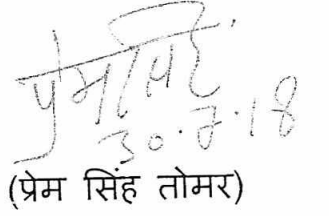 प्रेमसिंह
30.7.18
(प्रेम सिंह तोमर)